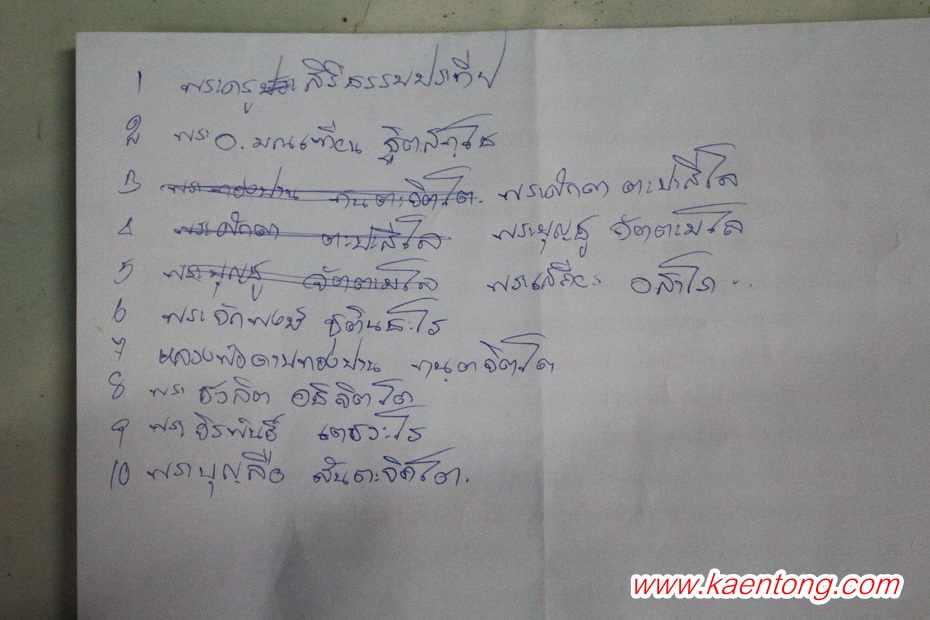 1 พระครู สิริธรรมประทีป
2 พระ อ. มณเฑียร ฐิตสทฺโธ
3 พระทองปาน ทนตะจิตโต. พระศักดา ตะปะสีโล
4 พระศักดา ตะปะสีโล พระบุญชู
5 พระบุญชู พระเสถียร อสโภ
6 พระ จักพงษ์
7 หลวงพ่อดาบทองปาน ทนฺตจิตโต
8 พระ ชวลิต อธิจิตโต
9 พระ จิรพันธ์ เตชวะโร
10 พระ บุญลือ สันตะจิตโต.
www.kaentong.com